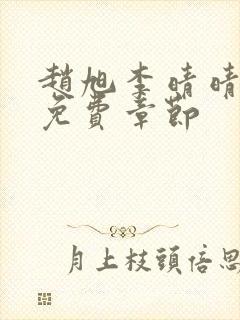 趙旭李晴晴
免費章節
月上枝頭倍思